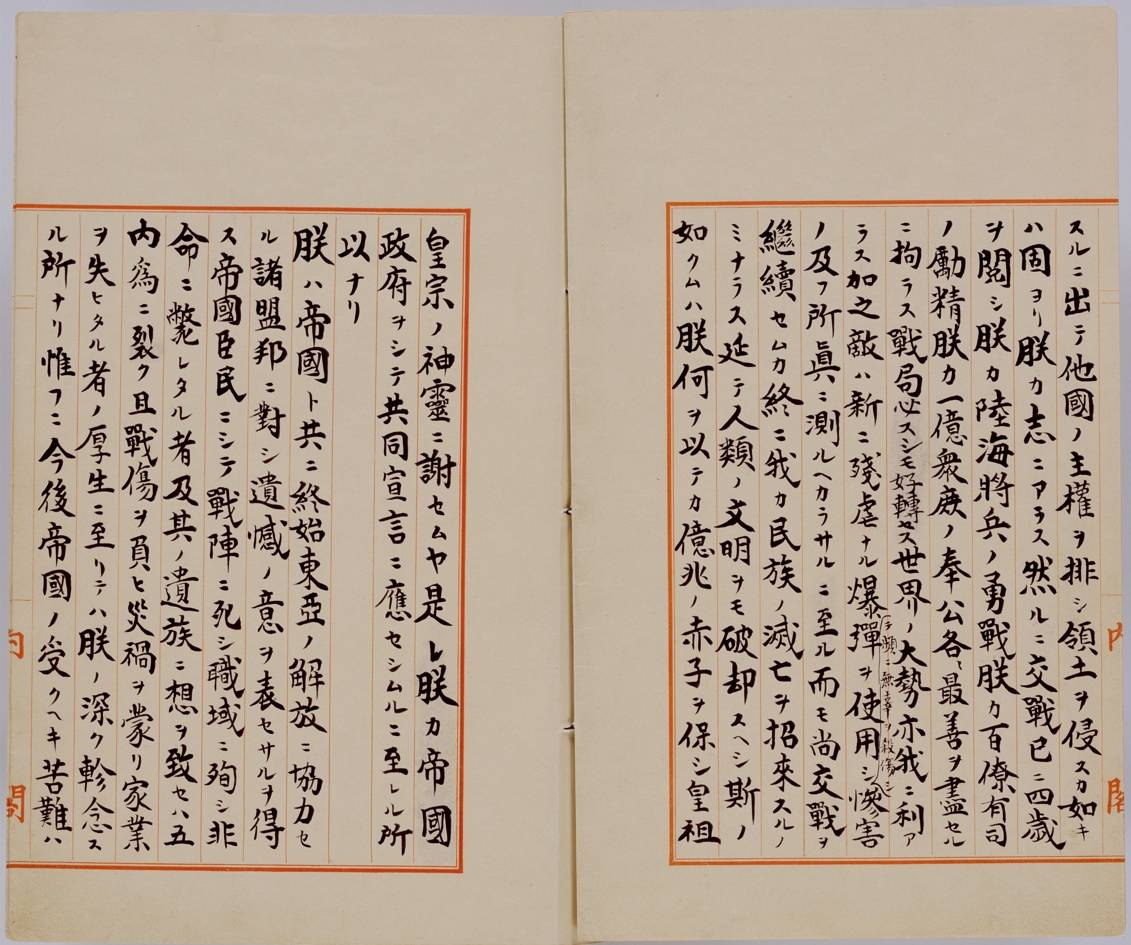 スルニ出テ他國ノ主權ヲ排シ領土ヲ侵スカ如キ
ハ固ヨリ朕カ志ニアラス然ルニ交戰已ニ四歳
ヲ閲シ朕カ陸海將兵ノ勇戰朕カ百僚有司
ノ勵精朕カ一億衆庶ノ奉公各〻最善ヲ盡セル
ニ拘ラス戰局必スシモ好轉セス世界ノ大勢亦我ニ利ア
ラス加之敵ハ新ニ殘虐ナル爆彈ヲ使用シ慘害
テ頻ニ無辜ヲ殺傷シ
ノ及フ所眞ニ測ルヘカラサルニ至ル而モ尚交戰ヲ
繼續セムカ終ニ我カ民族ノ滅亡ヲ招來スルノ
ミナラス延テ人類ノ文明ヲモ破却スヘシ斯ノ
如クムハ朕何ヲ以テカ億兆ノ赤子ヲ保シ皇祖
内閣
皇宗ノ神靈ニ謝セムヤ是レ朕カ帝國
政府ヲシテ共同宣言ニ應セシムルニ至レル所
以ナリ
朕ハ帝國ト共ニ終始東亞ノ解放ニ協力セ
ル諸盟邦ニ對シ遺憾ノ意ヲ表セサルヲ得
ス帝國臣民ニシテ戰陣ニ死シ職域ニ殉シ非
命ニ斃レタル者及其ノ遺族ニ想ヲ致セハ五
内爲ニ裂ク且戰傷ヲ負ヒ災禍ヲ蒙リ家業
ヲ失ヒタル者ノ厚生ニ至リテハ朕ノ深ク軫念ス
ル所ナリ惟フニ今後帝國ノ受クヘキ苦難ハ
内閣